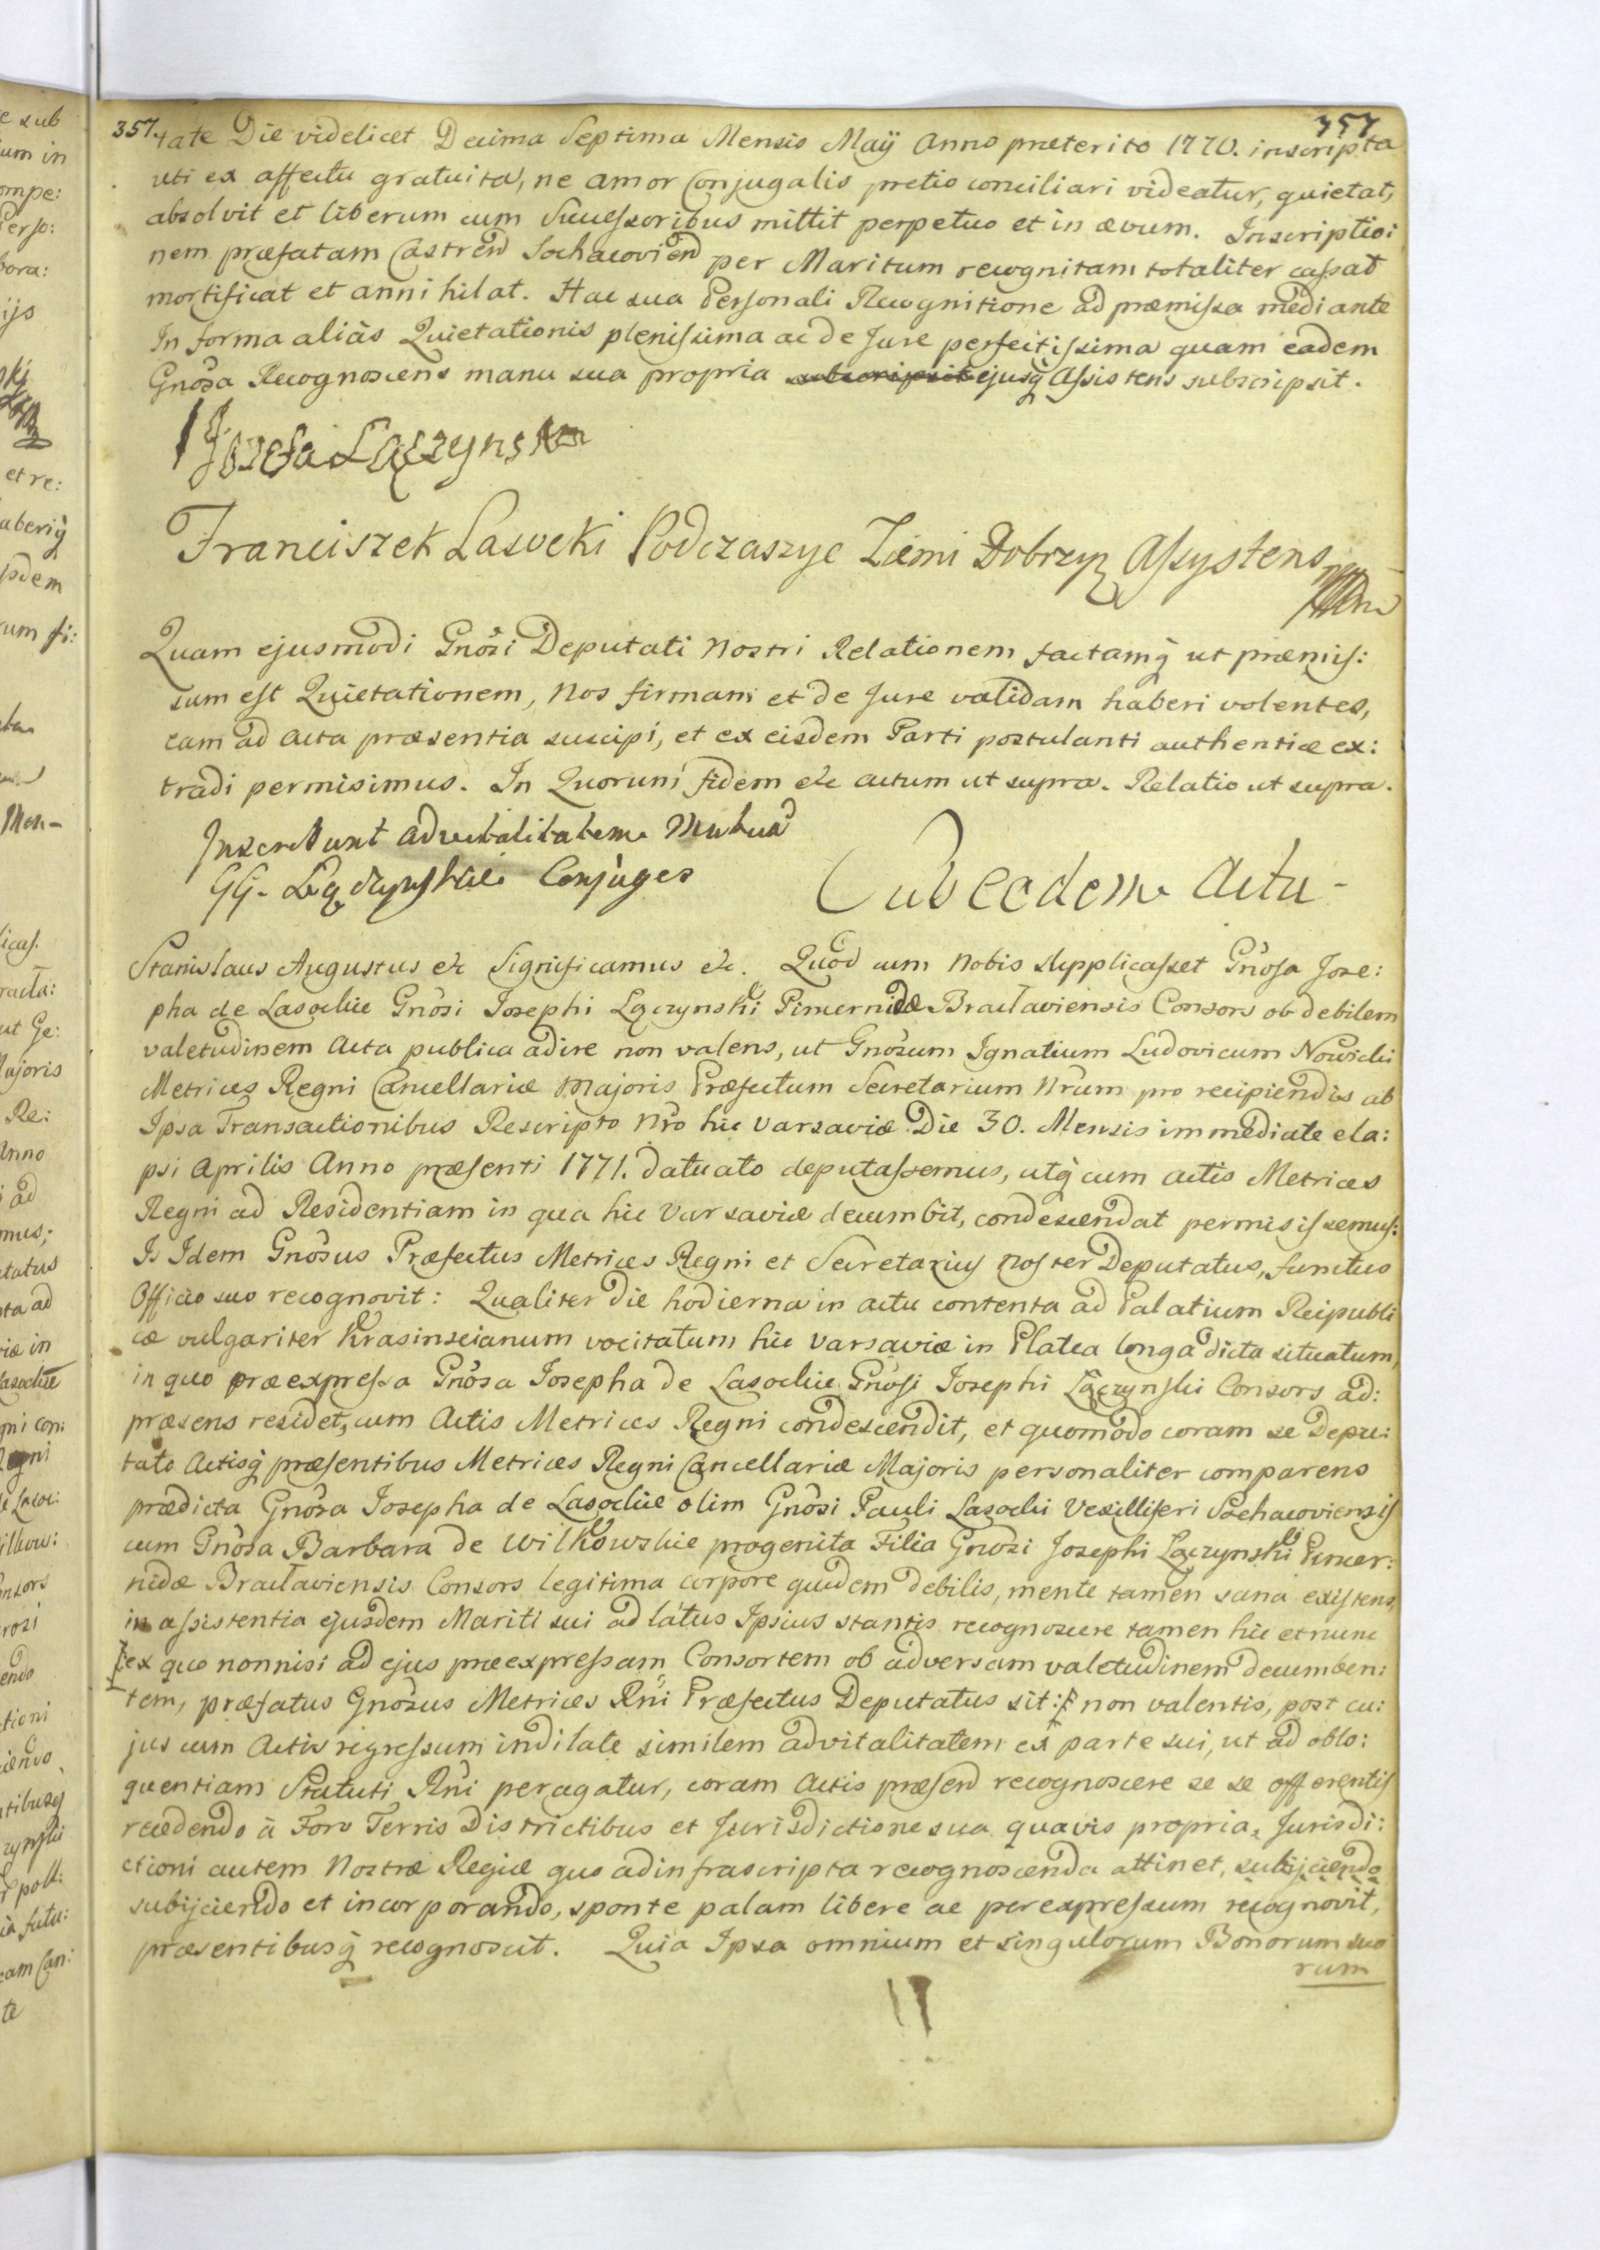 357.
357
tate Die videlicet Decima Septima Mensis Maÿ Anno præterito 1770. inscripta
uti ex affectu gratuita, ne amor Conjugalis pretio conciliari videatur, quietat,
absolvit et liberum cum Successoribus mittit perpetuo et in ævum. Inscriptio:
nem præfatam Castren Sochacovien per Maritum recognitam totaliter cassat
mortificat et annihilat. Hac sua Personali Recognitione ad præmissa mediante
In forma aliàs Quietationis plenissima ac de Jure perfectissima quam eadem
Gnosa Recognoscens manu sua propria subscripsit ejusq Assistens subscripsit.
Jozefa Łączynska
Franciszek Lasocki Podczaszyc Ziemi Dobrzyn Assystens
Quam ejusmodi Gnosi Deputati Nostri Relationem factamq ut præmis:
sum est Quietationem, Nos firmam et de Jure validam haberi volentes,
eam ad acta præsentia suscipi, et ex eisdem Parti postulanti authenticæ ex:
tradi permisimus. In Quorum fidem etc actum ut supra. Relatio ut supra.
Inscribunt advitalitatem Mutua
GG. Łączynskie Conjuges
Sub eadem Actu
Stanislaus Augustus etc Significamus etc. Quod cum Nobis supplicasset Gnosa Jose:
pha de Lasockie Gnosi Josephi Łączynski Pincernidæ Bracłaviensis Consors ob debilem
valetudinem Acta publica adire non valens, ut Gnosum Ignatium Ludovicum Nowicki
Metrices Regni Cancellariæ Majoris Præfectum Secretarium Nrum pro recipiendis ab
Ipsa Transactionibus Rescripto Nro hic Varsaviæ Die 30. Mensis immediate ela:
psi Aprilis Anno præsenti 1771. datuato deputassemus, utq cum actis Metrices
Regni ad Residentiam in qua hic Varsaviæ decumbit, condescendat permisissemus:
Is Idem Gnosus Præfectus Metrices Regni et Secretarius Noster Deputatus, functus
Officio suo recognovit: Qualiter die hodierna in actu contenta ad Palatium Reipubli
cæ vulgariter Krasinscianum vocitatum hic Varsaviæ in Platea longa dicta situatum,
in quo præexpressa Gnosa Josepha de Lasockie Gnosi Josephi Łączynski Consors ad:
præsens residet, cum Actis Metrices Regni condescendit, et quomodo coram se Depu:
tato Actisq præsentibus Metrices Regni Cancellariæ Majoris personaliter comparens
prædicta Gnosa Josepha de Lasockie olim Gnosi Pauli Lasocki Vexilliferi Sochacoviensis
cum Gnosa Barbara de Wilkowskie progenita Filia Gnosi Josephi Łączynski Pincer:
nidæ Bracłaviensis Consors legitima corpore quidem debilis, mente tamen sana existens,
in assistentia ejusdem Mariti sui ad latus Ipsius stantis recognoscere tamen hic et nunc
ex quo nonnisi ad ejus præexpressam Consortem ob adversam valetudinem decumben:
tem, præfatus Gnosus Metrices Rni Præfectus Deputatus sit: non valentis, post cu:
jus cum Actis regressum indilate similem advitalitatem ex parte sui, ut ad oblo:
quentiam Statuti Rni peragatur, coram Actis præsen recognoscere se se offerentis
recedendo à Foro Terris Districtibus et Jurisdictione sua quavis propria, Jurisdi:
ctioni autem Nostræ Regiæ quo ad infrascripta recognoscenda attinet, subijciendo
subijciendo et incorporando, sponte palam libere ac per expressum recognovit,
præsentibusq recognoscit. Quia Ipsa omnium et singulorum Bonorum suo
rum